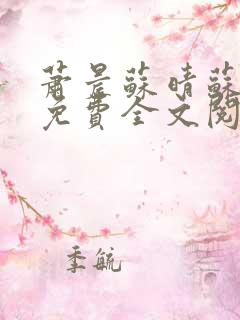 蕭晨蘇晴蘇
免費全文閱
季航